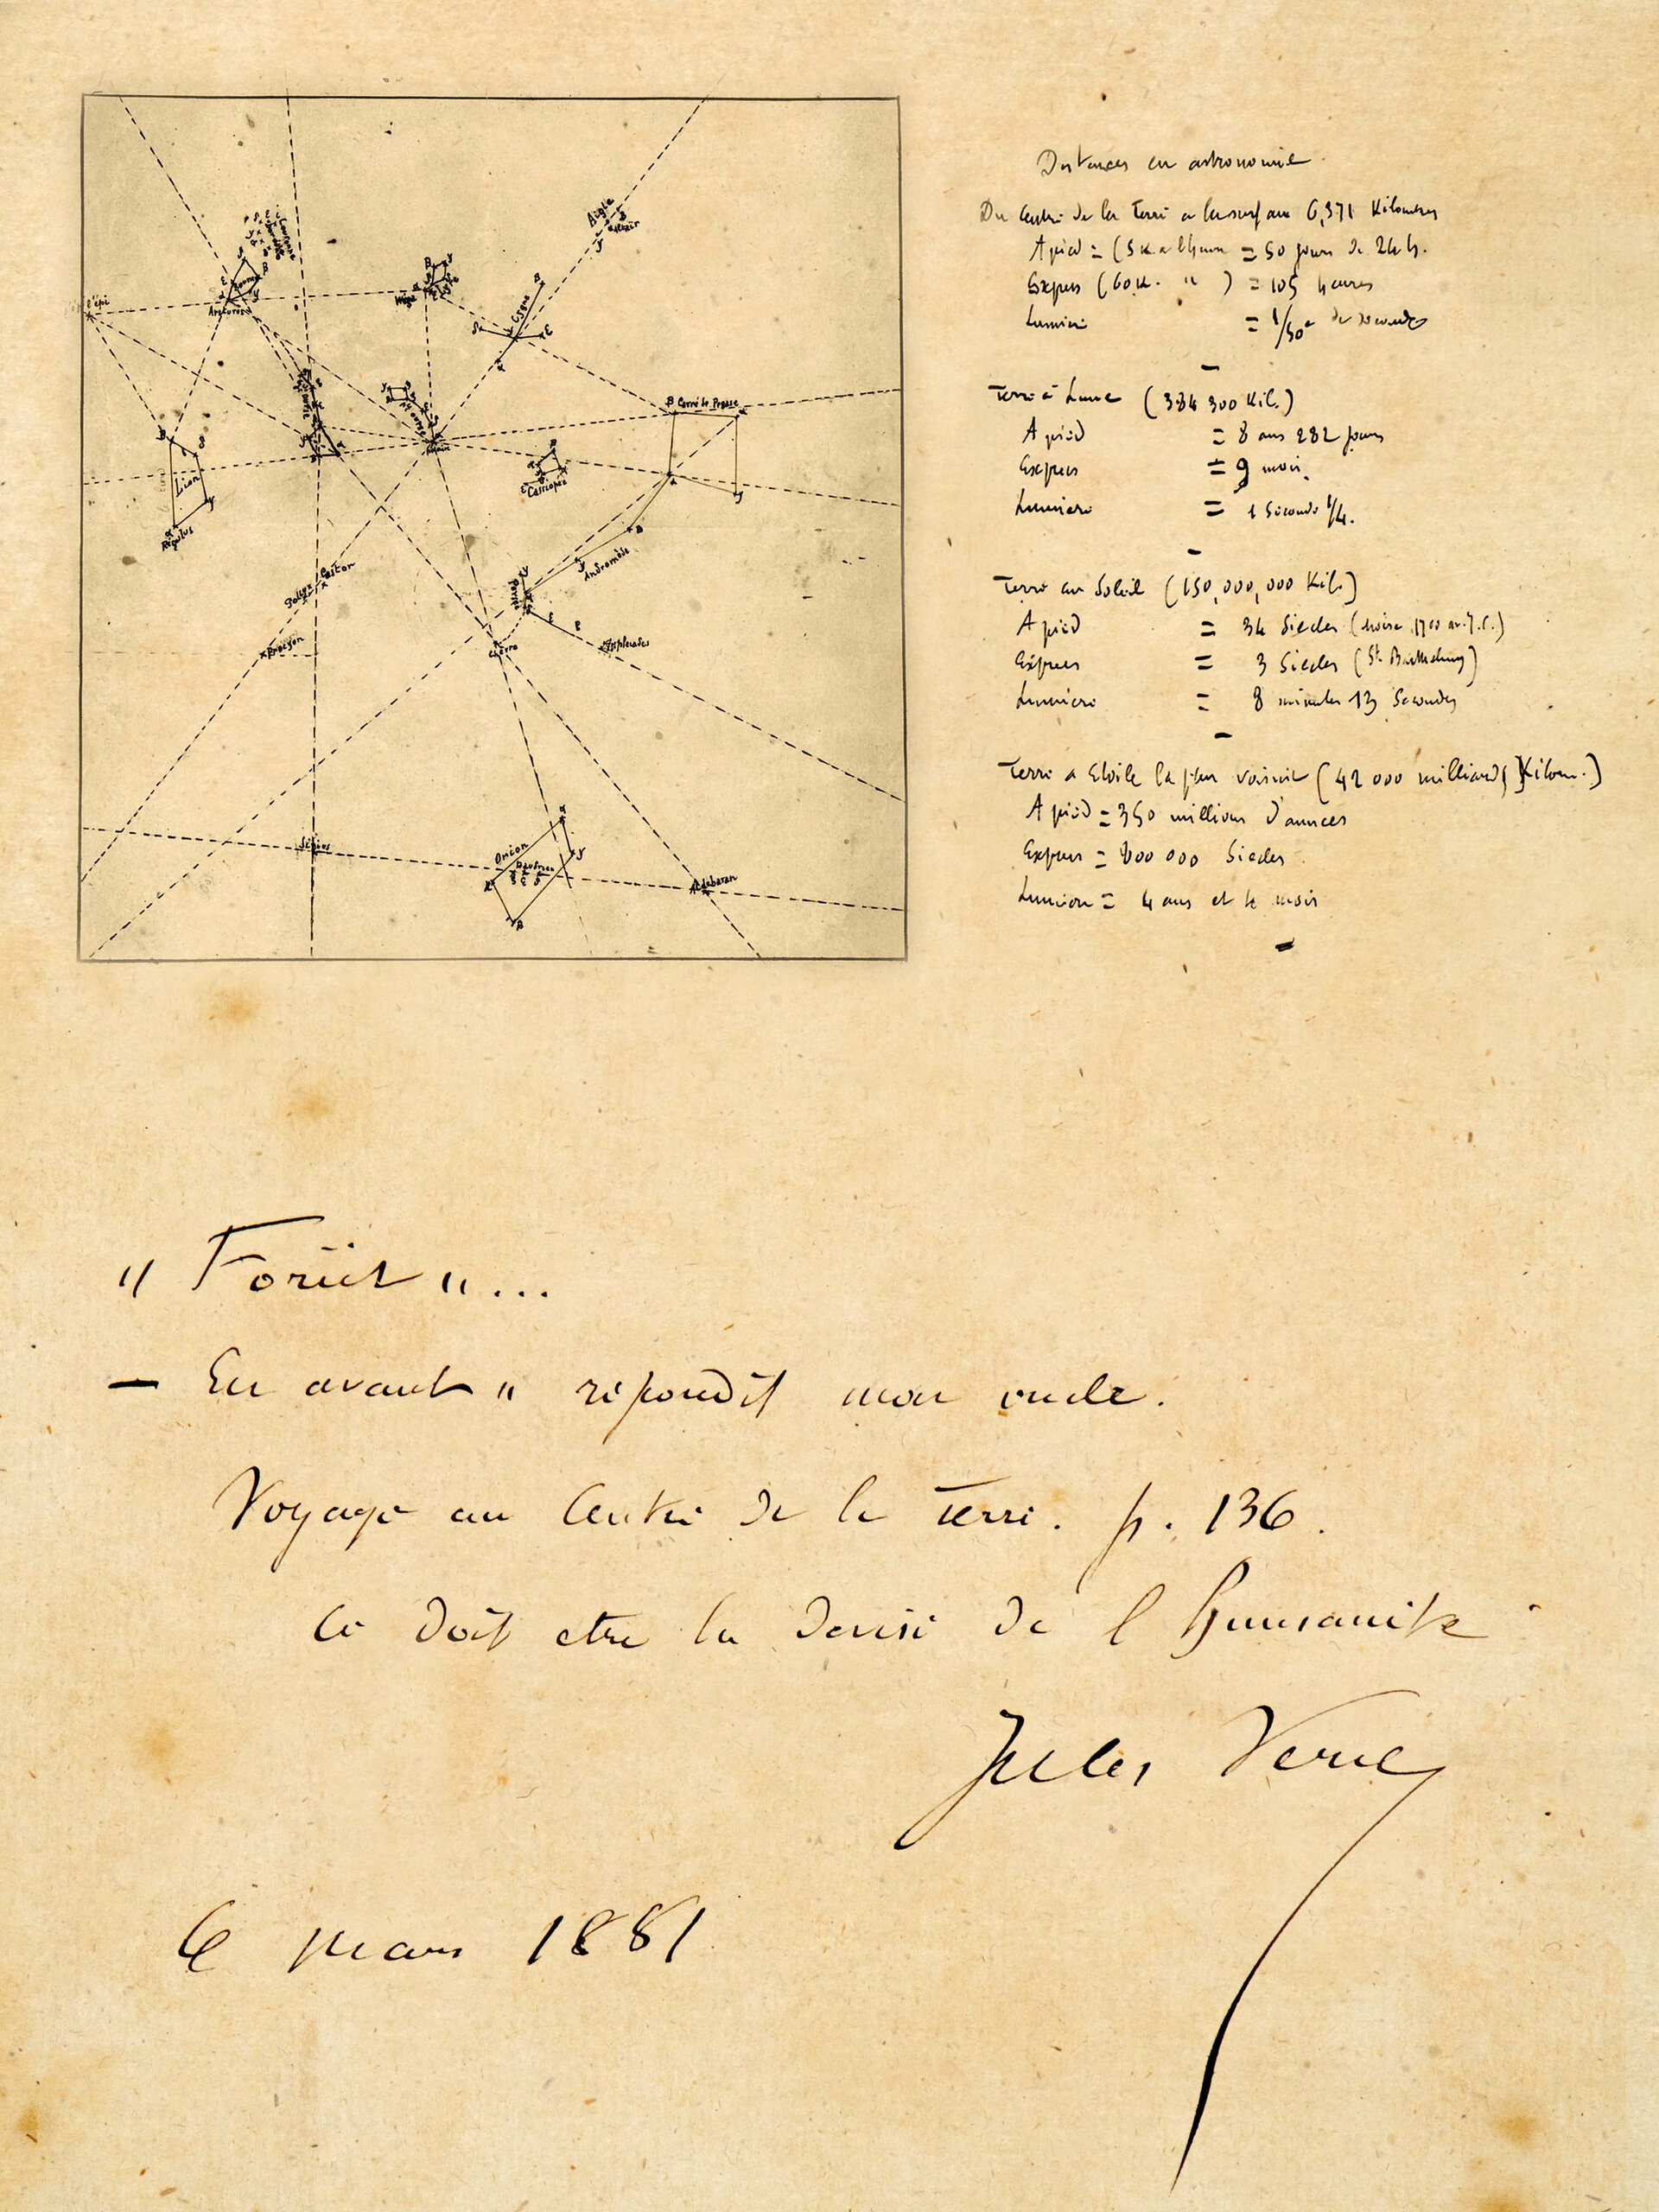 l'épi
Arcturus
Wéga
Cygne
Aigle
Altaïr
Lion
Régulus
Cassiopée
B Carré de Pégase
Andromède
Persée
Pollux Castor
Procyon
Pléiades
Sirius
Orion
Aldebaran
Distances en astronomie.
Du Centre de la Terre a la surface 6,371 Kilometres
A pied = (5 K. a l'heure = 50 jours de 24 h.
Express (60 K. " ) = 105 heures
Lumiere = 1/50e de seconde
Terre à Lune (384 300 Kil.)
A pied = 8 ans 282 jours
Express = 9 mois.
Lumiere = 1 Seconde 1/4.
Terre au Soleil (150,000,000 Kil.)
A pied = 34 Siecles (Moïse, 1700 av. J.C.)
Express = 3 Siecles (St Barthelemy)
Lumiere = 8 minutes 13 Secondes
Terre a Etoile la plus voisine (42 000 milliards Kilom.)
A pied = 350 millions d'années
Express = 800 000 Siecles
Lumiere = 4 ans et le mois
" Forüt " ...
— En avant " répondit mon oncle.
Voyage au Centre de la Terre. p. 136.
Ce doit etre la devise de l humanite
Jules Verne
6 mars 1881